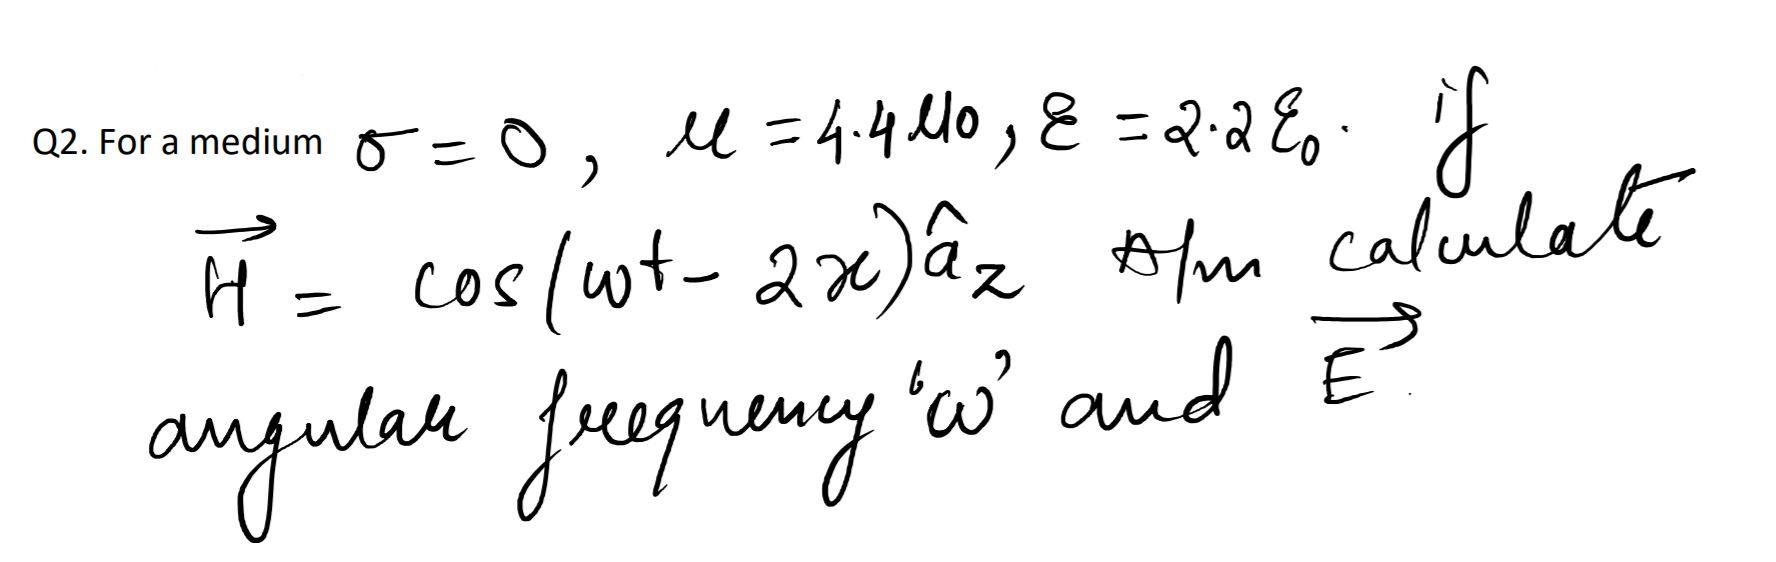 Q2. For a medium σ = 0, μ = 4.4 μ0, ε = 2.2 ε₀. if
H⃗ = cos(ωt - 2x) â_z A/m calculate
angular frequency 'ω' and E⃗.